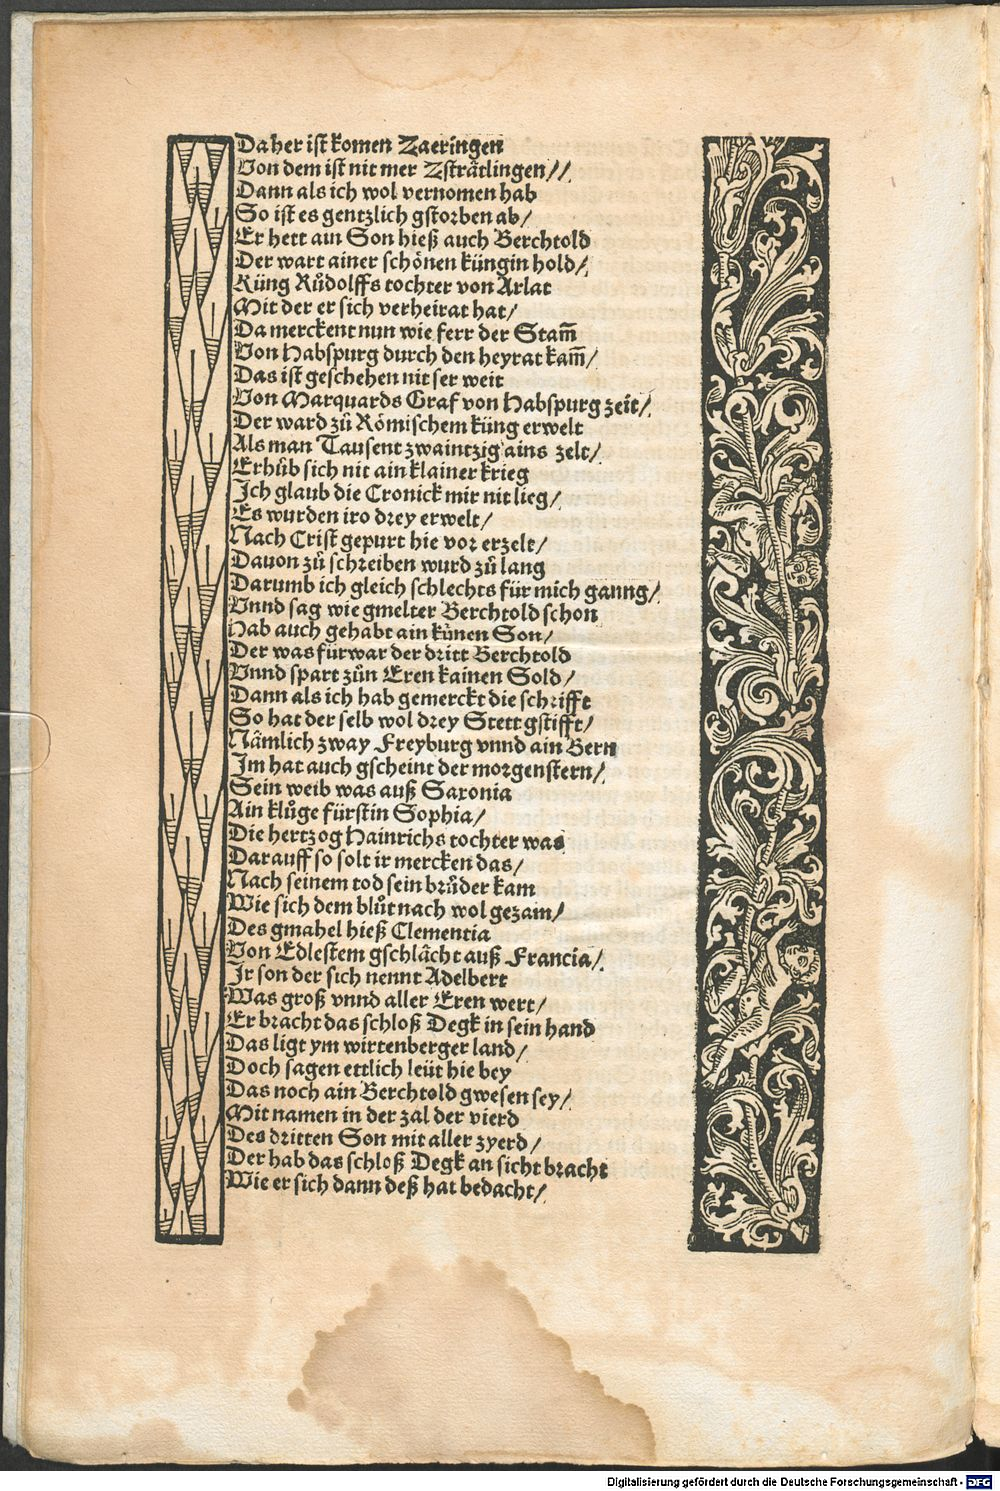 Daher ist komen Zaeringen
Von dem ist nit mer Zsträtlingen//
Dann als ich wol vernomen hab
So ist es gentzlich gstorben ab/
Er hett ain Son hieß auch Berchtold
Der wart ainer schönen küngin hold/
Küng Růdolffs tochter von Arlat
Mit der er sich verheirat hat/
Da merckent nun wie ferr der Stam̃
Von Habspurg durch den heyrat kam̃/
Das ist geschehen nit ser weit
Von Marquards Graf von Habspurg zeit/
Der ward zů Römischem küng erwelt
Als man Tausent zwaintzig ains zelt/
Erhůb sich nit ain klainer krieg
Ich glaub die Cronick mir nit lieg/
Es wurden iro drey erwelt/
Nach Crist gepurt hie vor erzelt/
Dauon zů schreiben wurd zů lang
Darumb ich gleich schlechts für mich ganng/
Vnnd sag wie gmelter Berchtold schon
Hab auch gehabt ain kůnen Son/
Der was fürwar der dritt Berchtold
Vnnd spart zůn Eren kainen Sold/
Dann als ich hab gemerckt die schrifft
So hat der selb wol drey Stett gstifft/
Nämlich zway Freyburg vnnd ain Bern
Im hat auch gscheint der morgenstern/
Sein weib was auß Saxonia
Ain klůge fürstin Sophia/
Die hertzog Hainrichs tochter was
Darauff so solt ir mercken das/
Nach seinem tod sein brůder kam
Wie sich dem blůt nach wol gezam/
Des gmahel hieß Clementia
Von Edlestem gschlächt auß Francia/
Ir son der sich nennt Adelbert
Was groß vnnd aller Eren wert/
Er bracht das schloß Degk in sein hand
Das ligt ym wirtenberger land/
Doch sagen ettlich leüt hie bey
Das noch ain Berchtold gwesen sey/
Mit namen in der zal der vierd
Des dritten Son mit aller zyerd/
Der hab das schloß Degk an sicht bracht
Wie er sich dann deß hat bedacht/
Digitalisierung gefördert durch die Deutsche Forschungsgemeinschaft - DFG